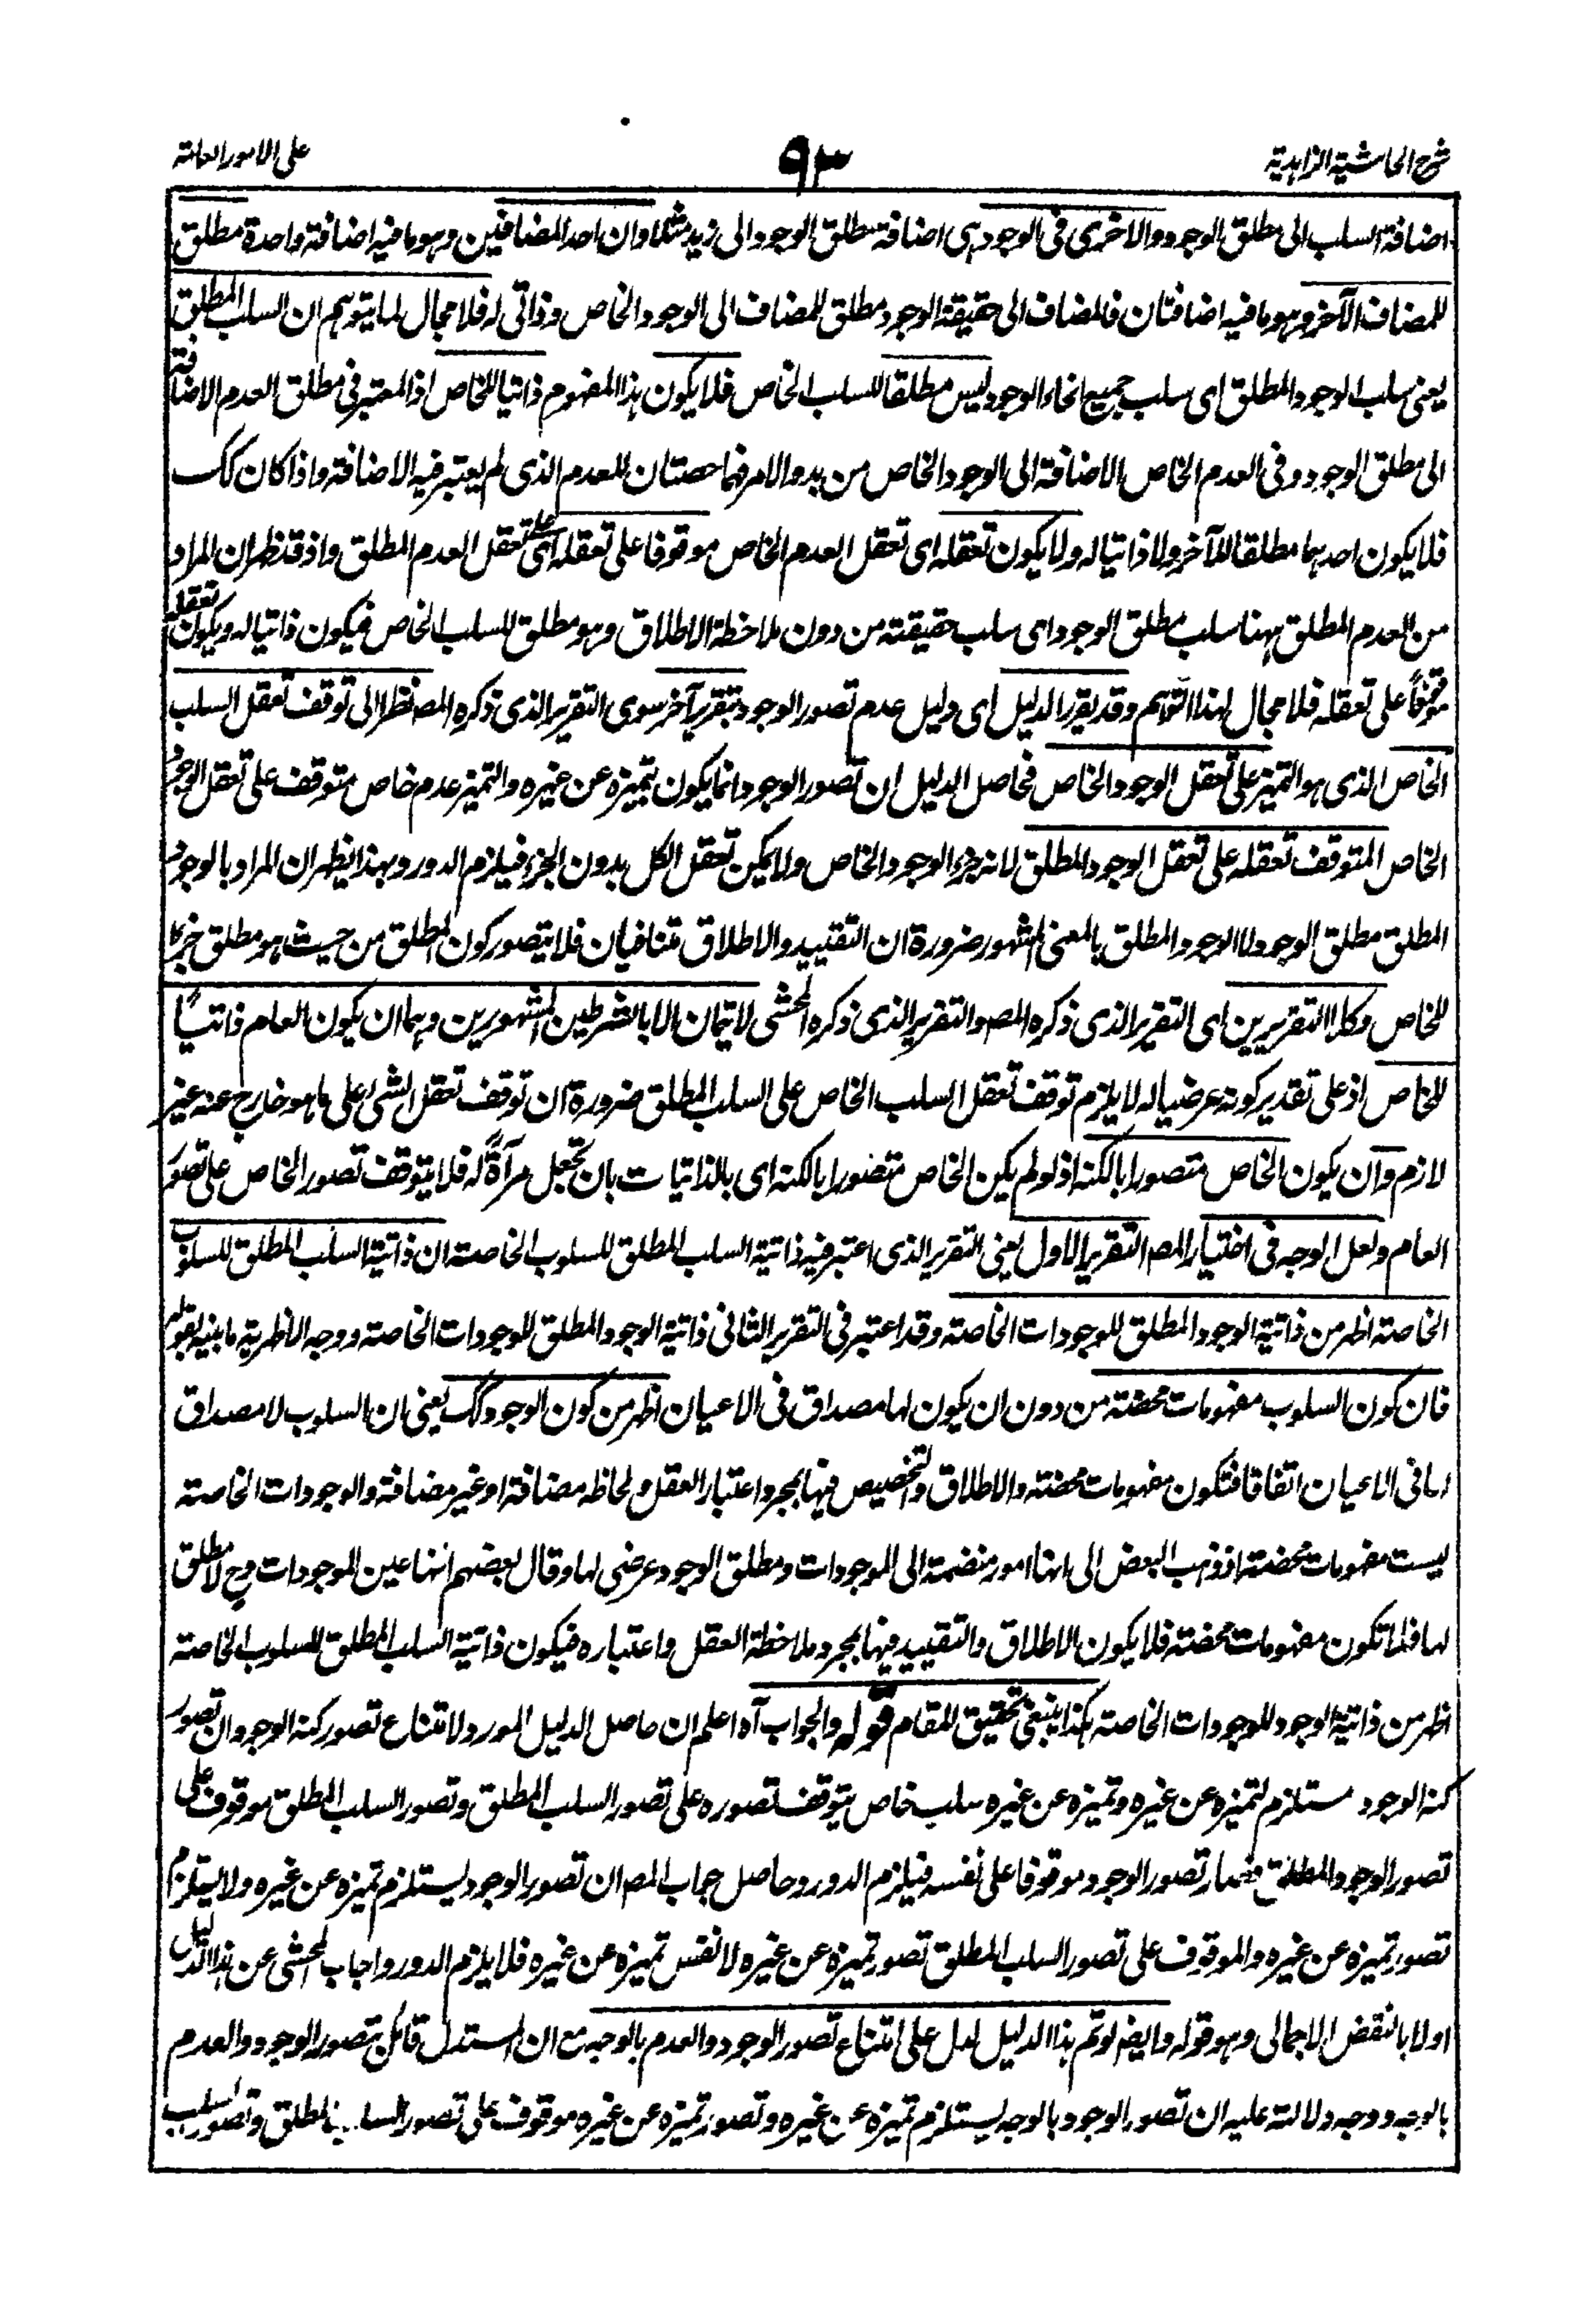 شرح الحاشية الزاهدية ٩٣ على الامور العامة
اضافة السلب الى مطلق الوجود والاخرى فى الوجود هى اضافة مطلق الوجود الى زيد مثلا وان احد المضافين وهو ما فيه اضافة واحدة مطلق
للمضاف الآخر وهو ما فيه اضافتان فالمضاف الى حقيقة الوجود مطلق للمضاف الى الوجود الخاص وذاتى له فلا مجال لما يتوهم ان السلب المطلق
يعنى سلب الوجود المطلق اى سلب جميع انحاء الوجود ليس مطلقا للسلب الخاص فلا يكون هذا المفهوم ذاتيا للخاص اذ المعتبر فى مطلق العدم الاضافة
الى مطلق الوجود وفى العدم الخاص الاضافة الى الوجود الخاص من بدو الامر فهما حصتان للعدم الذى لم يعتبر فيه الاضافة واذا كان كك
فلا يكون احدهما مطلقا للآخر ولا ذاتيا له ولا يكون تعقله اى تعقل العدم الخاص موقوفا على تعقله اى على تعقل العدم المطلق واذ قد ظهر ان المراد
من العدم المطلق ههنا سلب مطلق الوجود اى سلب حقيقته من دون ملاحظة الاطلاق وهو مطلق للسلب الخاص فيكون ذاتيا له ويكون تعقله
موقوفاً على تعقله فلا مجال لهذا التوهم وقد يقرر الدليل اى دليل عدم تصور الوجود بتقرير آخر سوى التقرير الذى ذكره المصـ نظرا الى توقف تعقل السلب
الخاص الذى هو التميز على تعقل الوجود الخاص فحاصل الدليل ان تصور الوجود انما يكون بتميزه عن غيره والتميز عدم خاص متوقف على تعقل الوجود
الخاص المتوقف تعقله على تعقل الوجود المطلق لانه جزء الوجود الخاص ولا يمكن تعقل الكل بدون الجزء فيلزم الدور وبهذا يظهر ان المراد بالوجود
المطلق مطلق الوجود لا الوجود المطلق بالمعنى المشهور ضرورة ان التقييد والاطلاق متنافيان فلا يتصور كون المطلق من حيث هو مطلق جزءا
للخاص وكلا التقريرين اى التقرير الذى ذكره المصـ والتقرير الذى ذكره المحشى لا يتمان الا بالشرطين المشهورين وهما ان يكون العام ذاتياً
للخاص اذ على تقدير كونه عرضيا له لا يلزم توقف تعقل السلب الخاص على السلب المطلق ضرورة ان توقف تعقل الشىء على ما هو خارج عنه غير
لازم وان يكون الخاص متصورا بالكنه اذ لو لم يكن الخاص متصورا بالكنه اى بالذاتيات بان تجعل مرآةً له فلا يتوقف تصور الخاص على تصور
العام ولعل الوجه فى اختيار المصـ التقرير الاول يعنى التقرير الذى اعتبر فيه ذاتية السلب المطلق للسلوب الخاصة ان ذاتية السلب المطلق للسلوب
الخاصة اظهر من ذاتية الوجود المطلق للوجودات الخاصة وقد اعتبر فى التقرير الثانى ذاتية الوجود المطلق للوجودات الخاصة ووجه الاظهرية ما بينه بقوله
فان كون السلوب مفهومات محضة من دون ان يكون لها مصداق فى الاعيان اظهر من كون الوجود كك يعنى ان السلوب لا مصداق
لها فى الاعيان اتفاقا فتكون مفهومات محضة والاطلاق والتخصيص فيها بمجرد اعتبار العقل ولحاظه مضافة او غير مضافة والوجودات الخاصة
ليست مفهومات محضة اذ ذهب البعض الى انها امور منضمة الى الموجودات ومطلق الوجود عرضى لها وقال بعضهم انها عين الموجودات وح لا مطلق
لها فلما تكون مفهومات محضة فلا يكون الاطلاق والتقييد فيها بمجرد ملاحظة العقل واعتباره فيكون ذاتية السلب المطلق للسلوب الخاصة
اظهر من ذاتية الوجود للوجودات الخاصة هكذا ينبغى تحقيق للمقام قوله والجواب آه اعلم ان حاصل الدليل المورد لامتناع تصور كنه الوجود ان تصور
كنه الوجود مستلزم لتميزه عن غيره وتميزه عن غيره سلب خاص يتوقف تصوره على تصور السلب المطلق وتصور السلب المطلق موقوف على
تصور الوجود المطلق فصار تصور الوجود موقوفا على نفسه فيلزم الدور وحاصل جواب المصـ ان تصور الوجود يستلزم تميزه عن غيره ولا يستلزم
تصور تميزه عن غيره والموقوف على تصور السلب المطلق تصور تميزه عن غيره لا نفس تميزه عن غيره فلا يلزم الدور واجاب المحشى عن هذا الدليل
اولا بالنقض الاجمالى وهو قوله وايضا لو تم هذا الدليل لدل على امتناع تصور الوجود والعدم بالوجه مع ان المستدل قائل بتصور الوجود والعدم
بالوجه ووجه دلالته عليه ان تصور الوجود بالوجه يستلزم تميزه عن غيره وتصور تميزه عن غيره موقوف على تصور السلب المطلق وتصور السلب